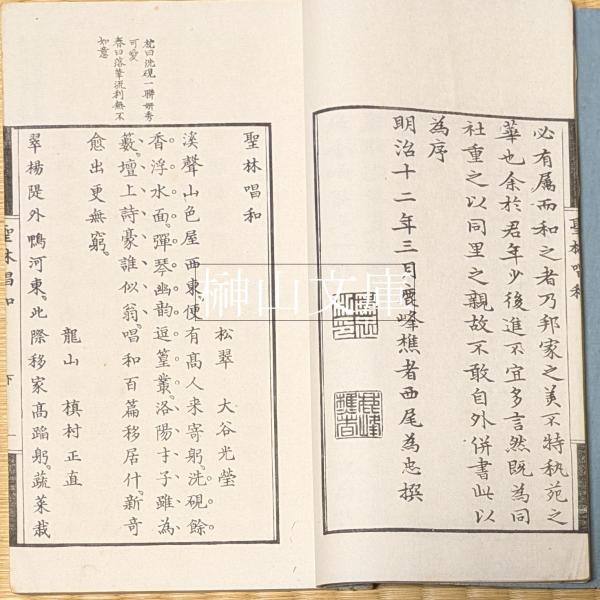 必有属而和之者乃邦家之美不特執苑之
華也余於君年少後進不宜多言然既為同
社重之以同里之親故不敢自外併書此以
為序
明治十二年三月鹿峰樵者西尾為忠撰
聖林唱和
枕曰洗硯一聯妍秀
可愛
春曰落筆流利無不
如意
聖林唱和
松翠 大谷光瑩
溪聲山色屋西東便有高人来寄躬洗硯餘
香浮水面彈琴幽韵逗篁叢洛陽才子雖為
藪壇上詩豪誰似翁唱和百篇移居什新奇
愈出更無窮
龍山 槙村正直
翠楊隄外鴨河東此際移家高蹈躬蔬菜栽
聖林唱和 下
榊山文庫